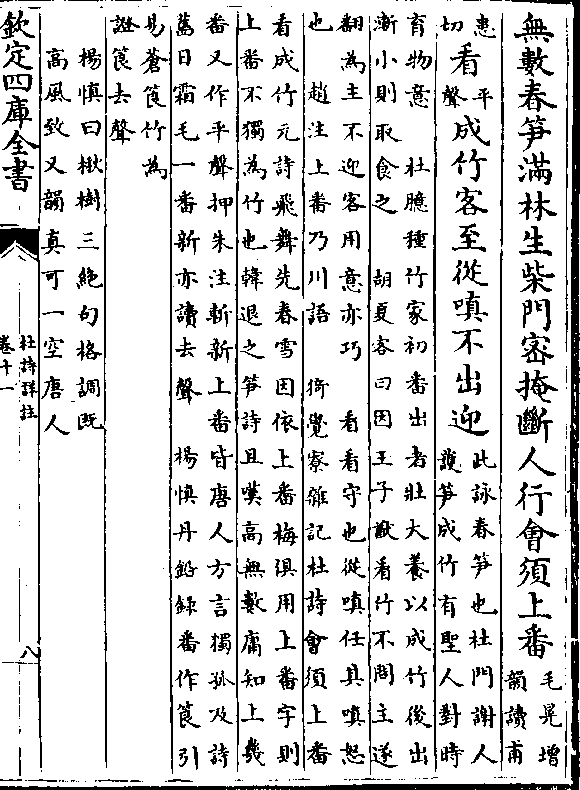 無數春笋滿林生柴門密掩斷人行會須上番
毛晃增
韻讀甫
患
切
看
平
聲
成竹客至從嗔不出迎
此詠春笋也杜門謝人
護笋成竹有聖人對時
育物意 杜臆種竹家初番出者壯大養以成竹後出
漸小則取食之 胡夏客曰因王子猷看竹不問主遂
翻為主不迎客用意亦巧 看看守也從嗔任其嗔怒
也 趙注上番乃川語 猗覺寮雜記杜詩會須上番
看成竹元詩飛舞先春雪因依上番梅俱用上番字則
上番不獨為竹也韓退之笋詩且嘆高無數庸知上幾
番又作平聲押朱注斬新上番皆唐人方言獨孤及詩
舊日霜毛一番新亦讀去聲 楊慎丹鉛録番作筤引
易蒼筤竹為
證筤去聲
楊慎曰楸樹三絶句格調既
高風致又韻真可一空唐人
欽定四庫全書
杜詩詳註
卷十一
八